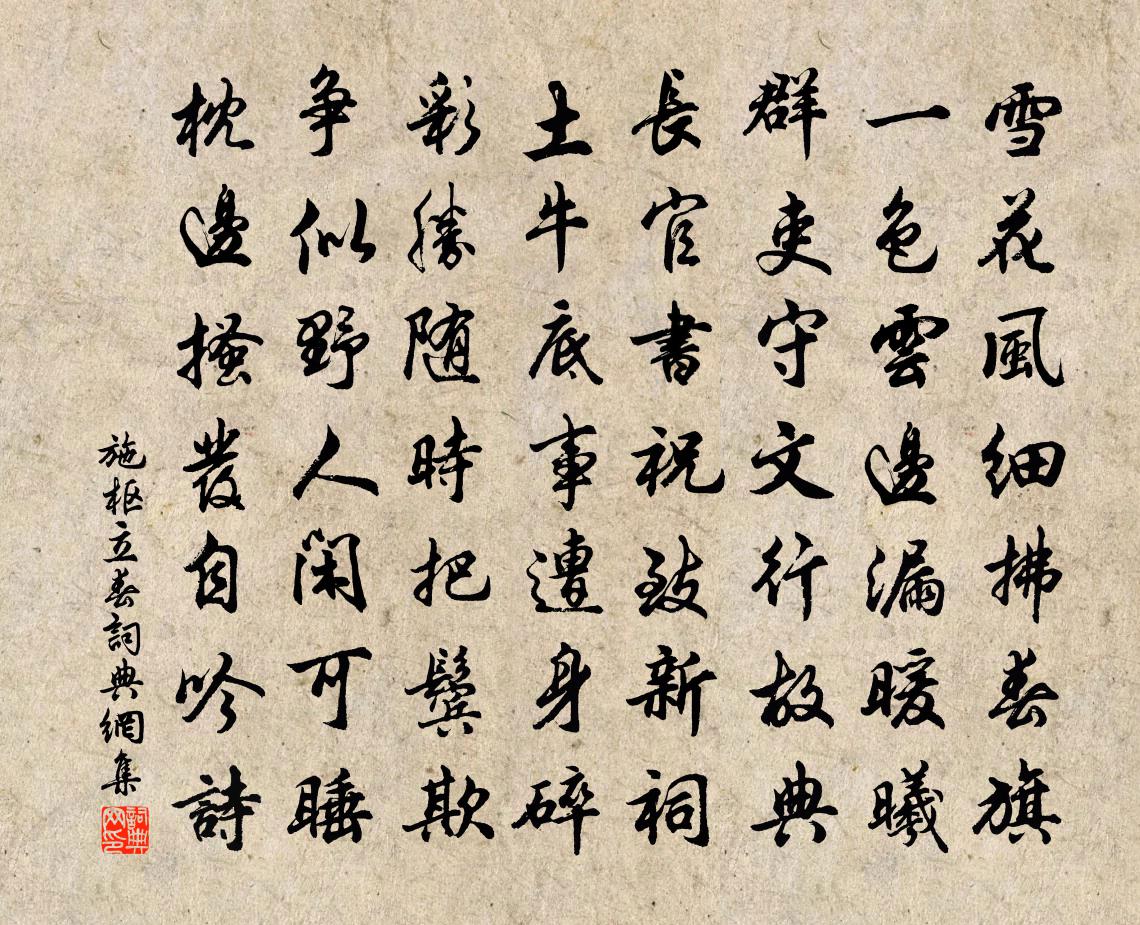 雪花風細拂春旗
一色雲邊漏暖曦
群吏守文行故典
長官書祝致新祠
土牛底事遭身碎
彩勝随時把鬢欺
争似野人閑可睡
枕邊搔髮自吟詩
施樞立春詞典網集
詞典網印